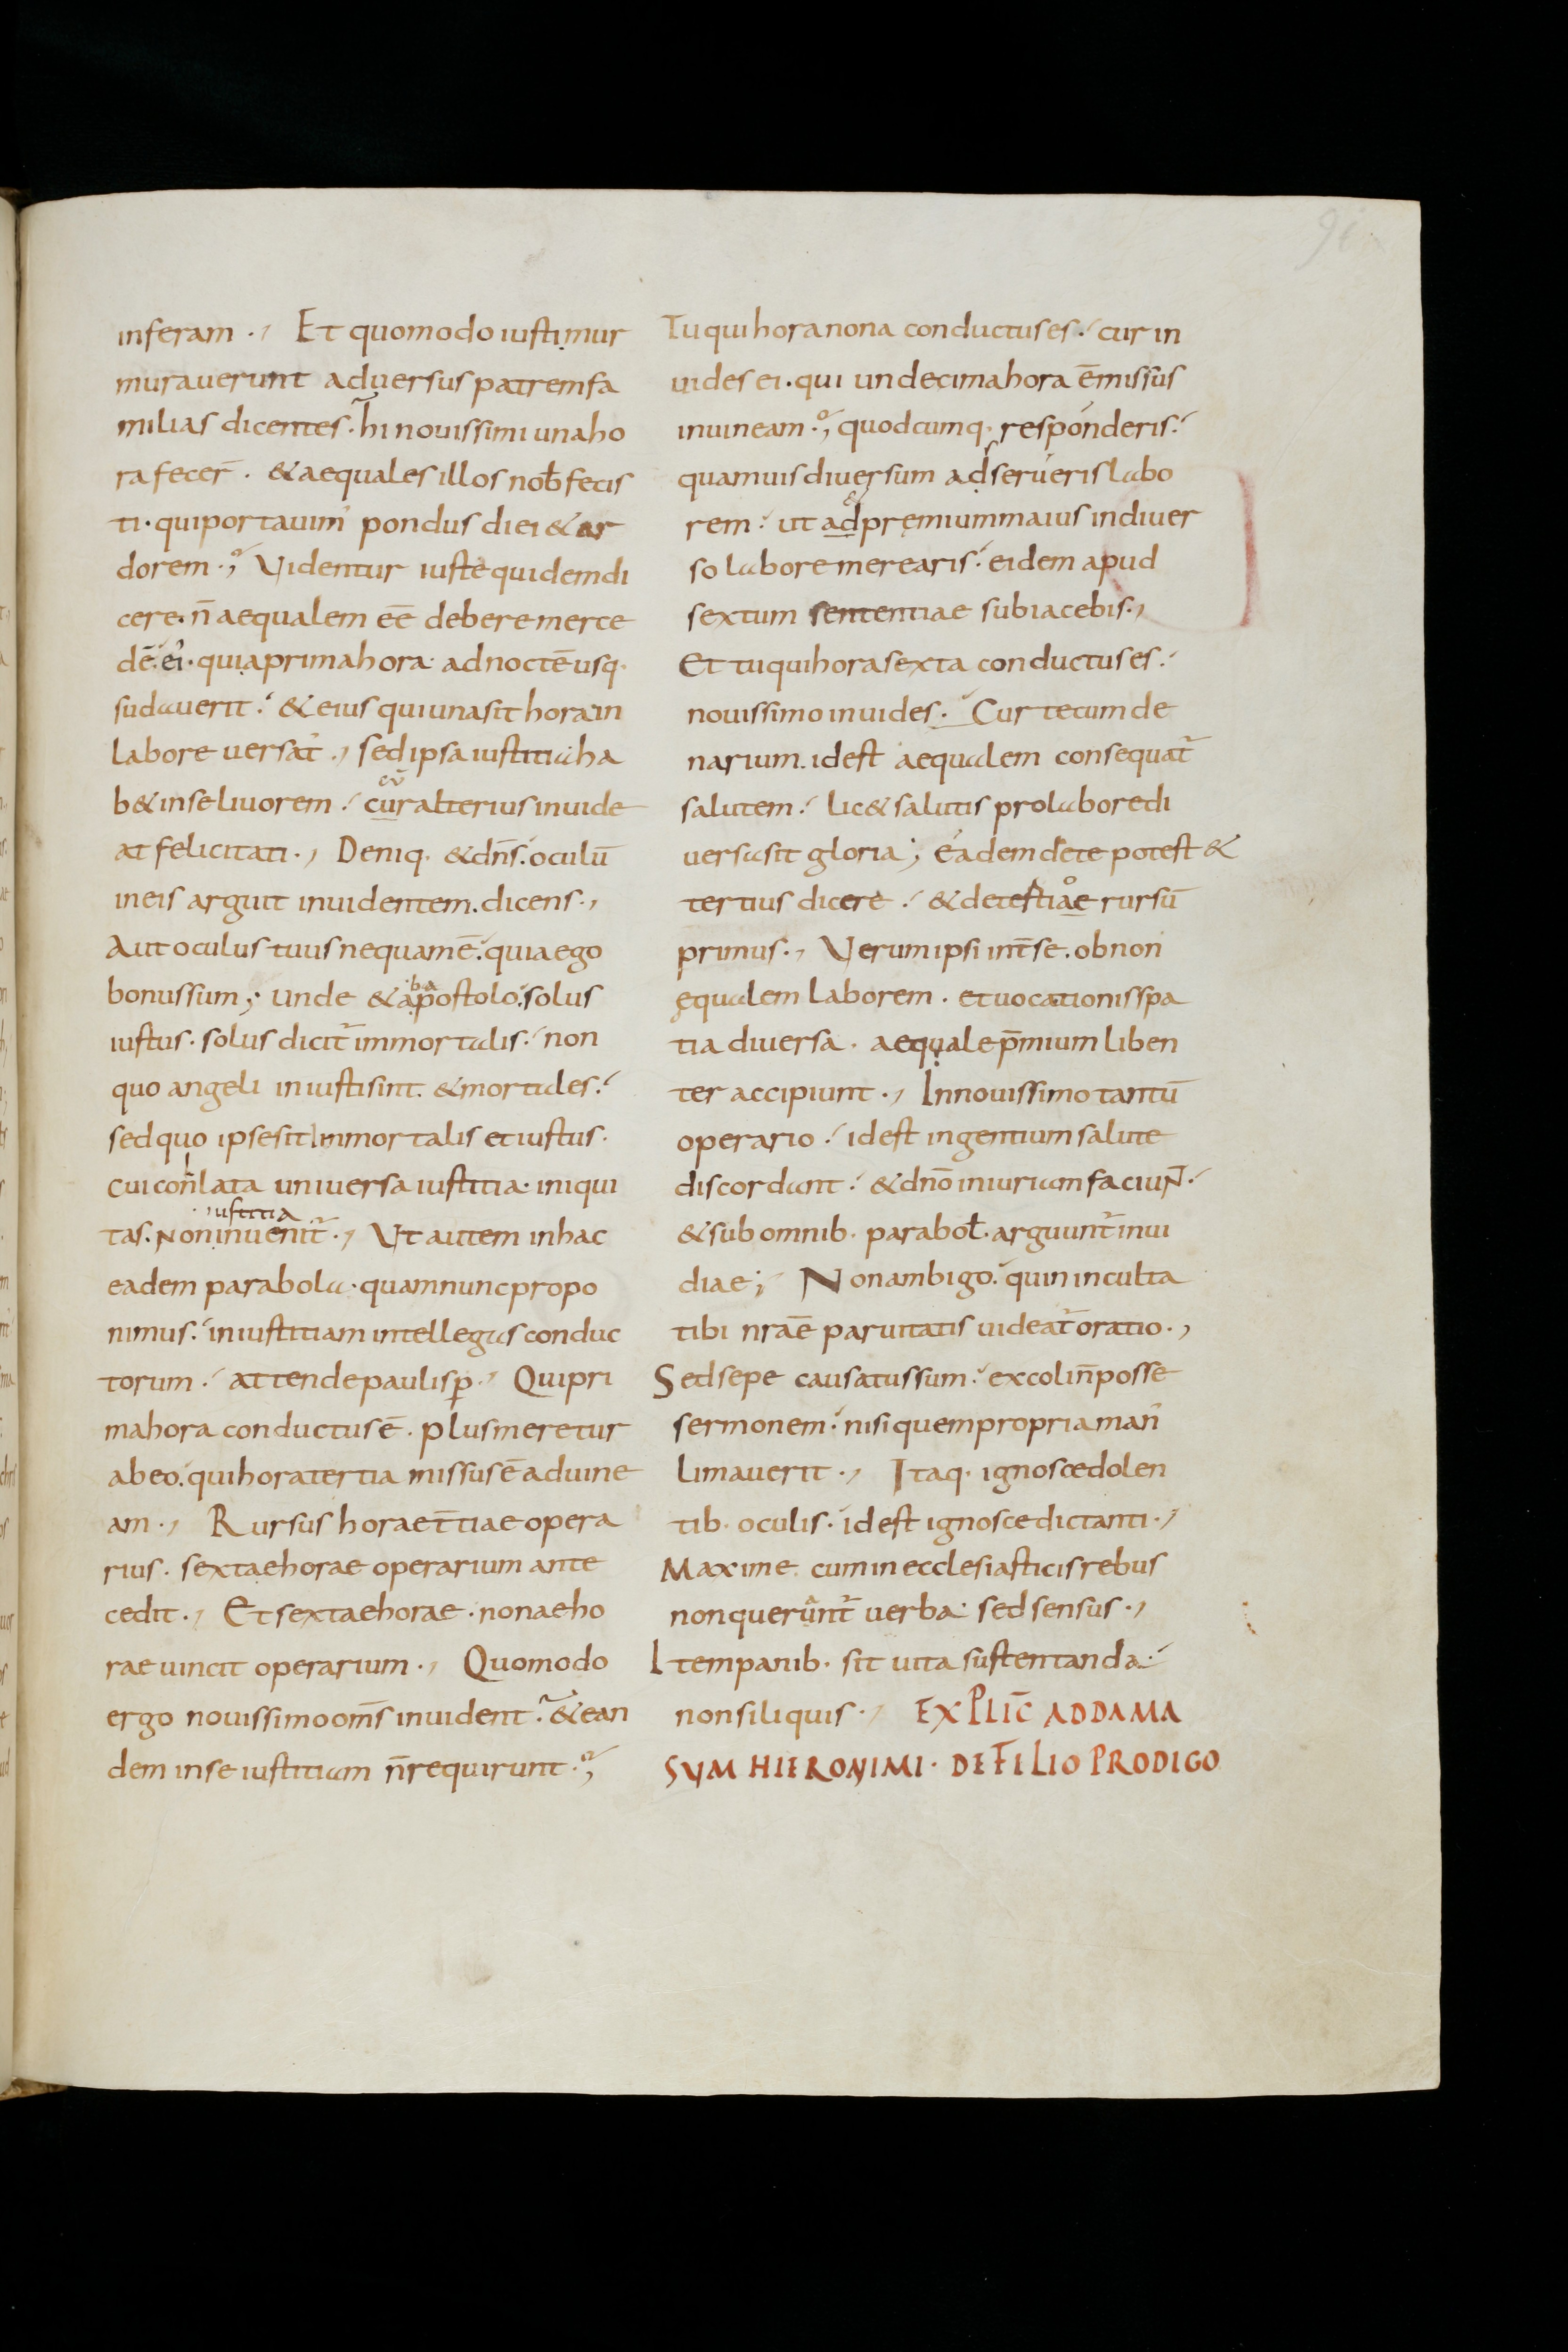 inferam ., Et quomodo iustimur
murauerunt aduersus patremfa
milias dicentes. hi nouissimi unaho
ra fecer̄ . & aequales illos nob̄ fecis
ti. quiportauim̄ pondus diei & ar
dorem .; Videntur iuste quidem di
cere. n̄ aequalem eē debere merce
dē. ei. quiaprimahora adnoctē usq.
sudauerit. & eius qui unasit hora in
labore versat̄ ., sed ipsa iustitia ha
b& inse liuorem . cur alterius inuide
at felicitati ., Deniq. & dn̄s. oculū
ineis arguit inuidentem. dicens .,
Aut oculus tuus nequam ē. quia ego
bonus sum; unde & apostolo. solus
iustus. solus dicit̄ immortalis. non
quo angeli iniusti sint. & mortales.
sed quo ipse sit immortalis et iustus.
cui con̄lata universa iustitia. iniqui
iustitia
tas. Non inuenit̄ ., Vt autem inhac
eadem parabola. quam nunc propo
nimus. iniustitiam intellegas conduc
torum. attende paulisp̄ ., Qui pri
mahora conductus ē. plus meretur
abeo. qui hora tertia missus ē aduine
am ., Rursus horae t̄tiae opera
rius. sextae horae operarium ante
cedit ., Et sextae horae. nonae ho
rae uincit operarium ., Quomodo
ergo nouissimo om̄s inuident. & ean
dem inse iustitiam n̄ requirunt .;
Tu qui hora nona conductus es. cur in
uides ei. qui undecima hora ē missus
inuineam .; quodcumq. responderis.
quamuis diuersum adserueris labo
rem. ut ad premium maius indiuer
so labore merearis. eidem apud
sextum sententiae subiacebis.,
Et tu qui hora sexta conductus es.
nouissimo inuides. Cur tecum de
narium. idest aequalem consequat̄
salutem. lic& salutis pro labore di
uersa sit gloria; eadem de te potest &
tertius dicere. & de tertiae rursū
primus ., Verum ipsi int̄ se. ob non
ęqualem laborem. et uocationis spa
tia diuersa. aequale p̄mium liben
ter accipiunt ., In nouissimo tantū
operario. idest ingentium salute
discordant. & dn̄o iniuriam faciuN̄.
& sub omnib. parabol̄. arguunt̄ inui
diae; Non ambigo. quin inculta
tibi nrāe paruitatis uideat̄ oratio .,
Sed sepe causatus sum. excoli n̄ posse
sermonem. nisi quem propria man̄
limauerit ., Itaq. ignosce dolen
tib. oculis. idest ignosce dictanti .,
Maxime cum in ecclesiasticis rebus
non querunt̄ verba. sed sensus .,
I tem panib. sit uita sustentanda.
non siliquis ., EXPLIC̄ AD DAMA
SVM HIERONYMI. DE FILIO PRODIGO